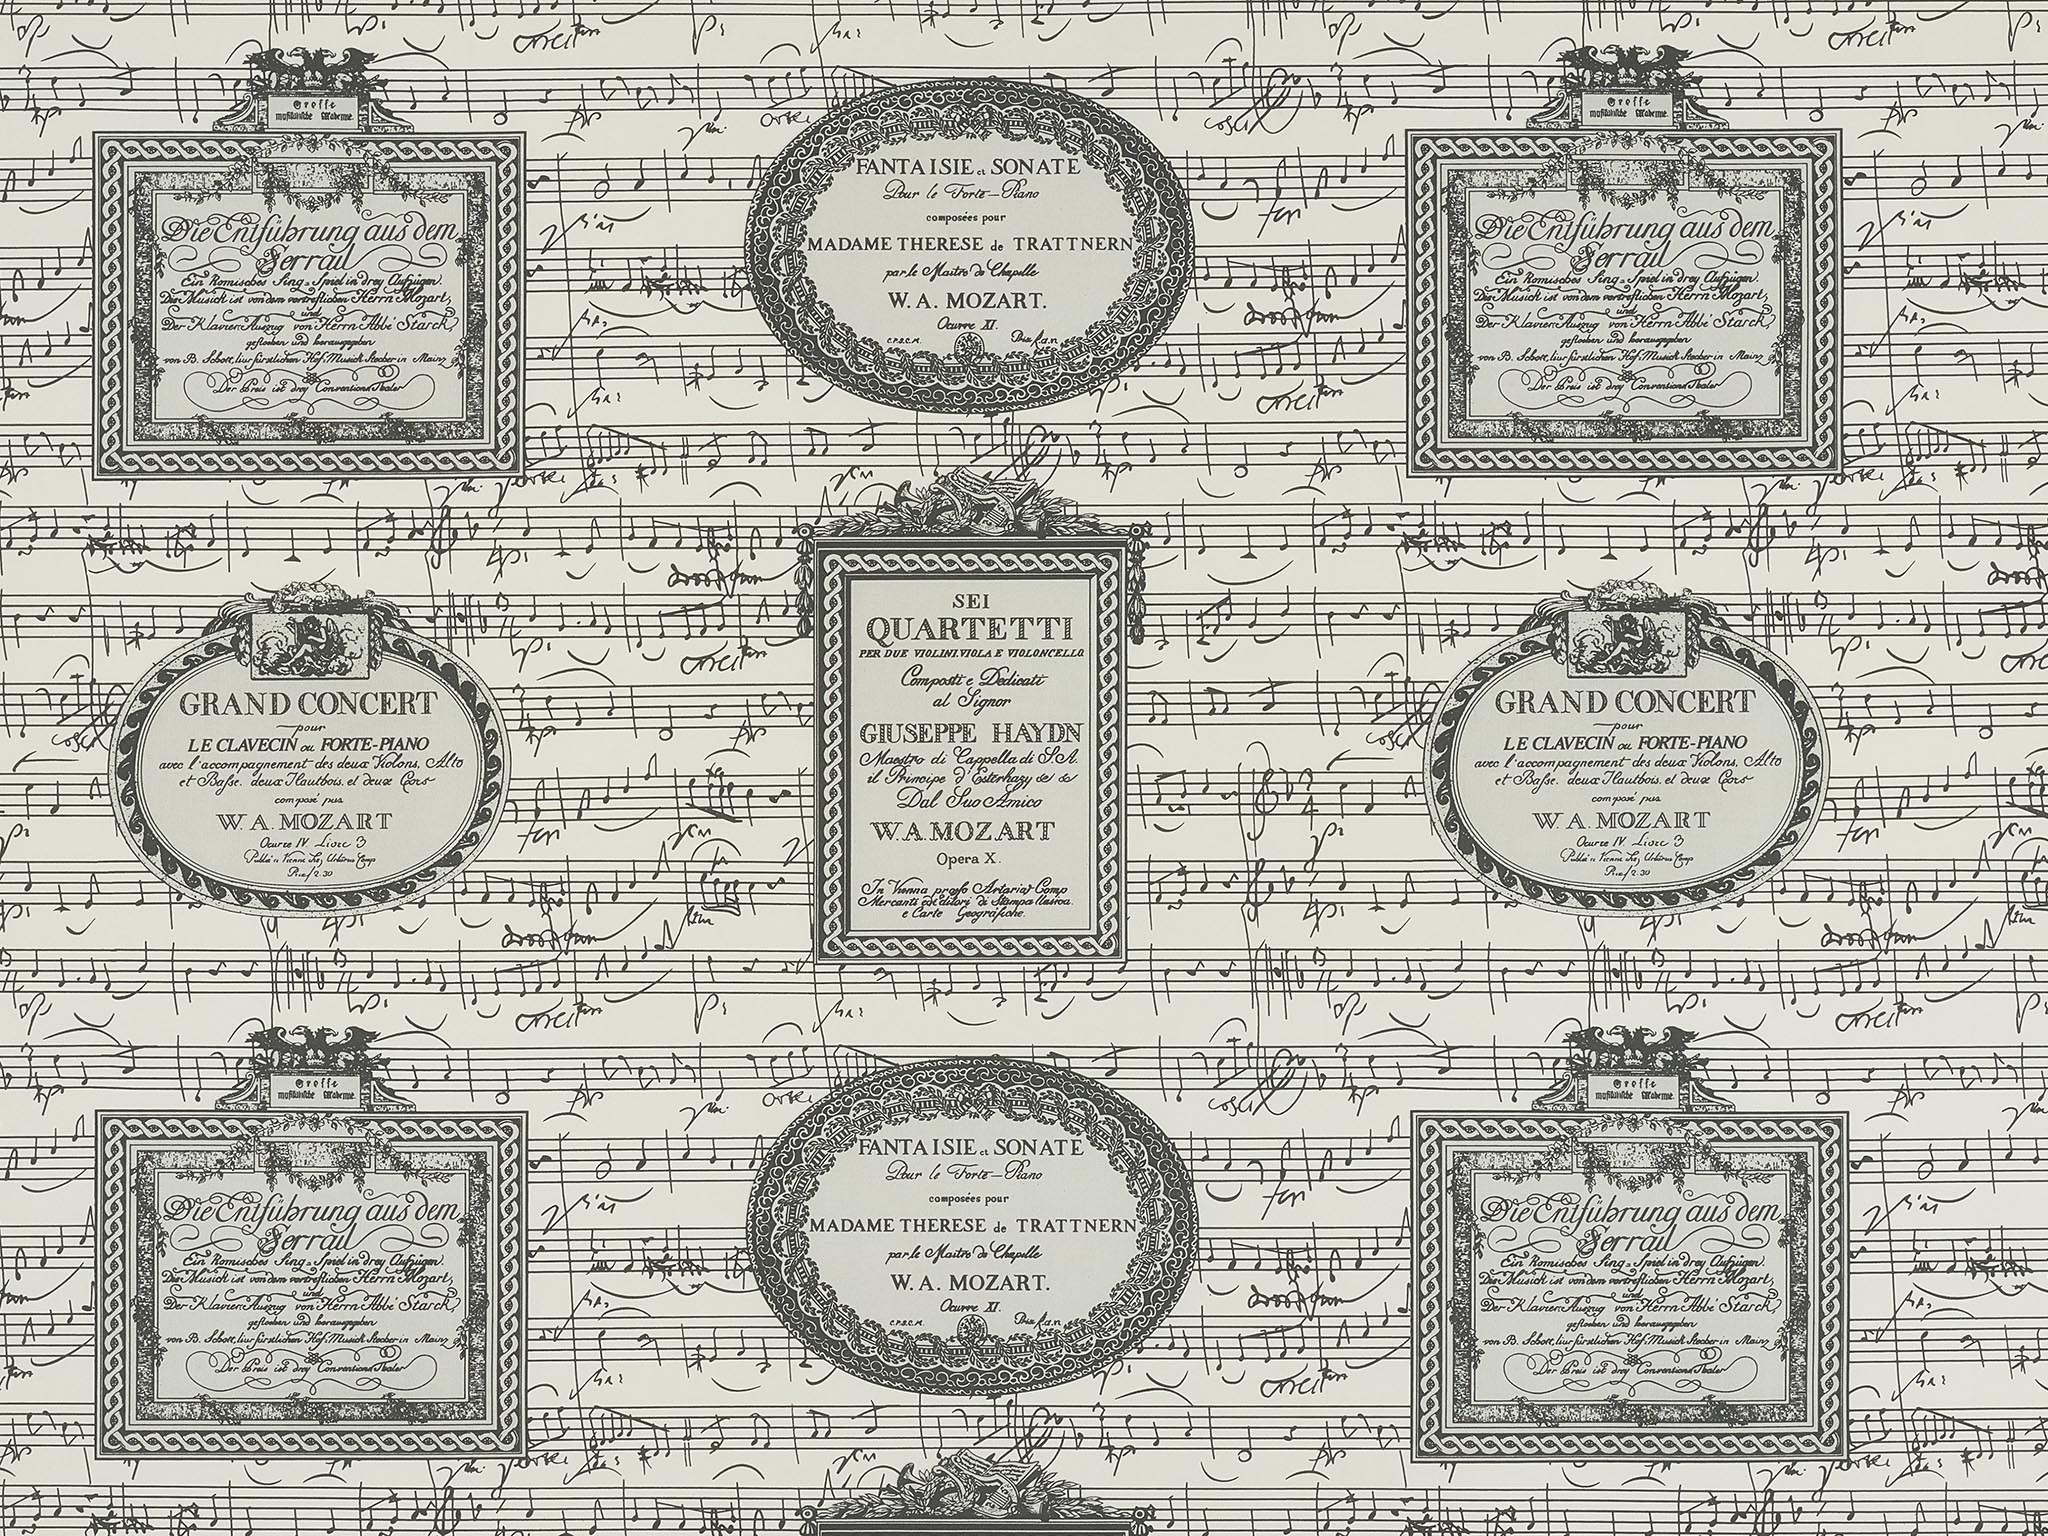 Grosse
musikalische Akademie.
Die Entführung aus dem
Serrail
Ein Komisches Sing=Spiel in drey Aufzügen.
Die Musick ist von dem vortreflichen Herrn Mozart,
und
Der Klavier-Auszug von Herrn Abbé Starck,
gestochen und herausgegeben
von B. Schott, Hof-Musick Stecher in Mainz
Der Preis ist drey Conventions Thaler
FANTAISIE et SONATE
Pour le Forte-Piano
composées pour
MADAME THERESE de TRATTNERN
par le Maitre de Chapelle
W. A. MOZART.
Oeuvre XI.
C.P.S.C.M.
Grosse
musikalische Akademie.
Die Entführung aus dem
Serrail
Ein Komisches Sing=Spiel in drey Aufzügen.
Die Musick ist von dem vortreflichen Herrn Mozart,
und
Der Klavier-Auszug von Herrn Abbé Starck,
gestochen und herausgegeben
von B. Schott, Hof-Musick Stecher in Mainz
Der Preis ist drey Conventions Thaler
GRAND CONCERT
pour
LE CLAVECIN ou FORTE-PIANO
avec l'accompagnement des deux Violons, Alto
et Basse. deux Hautbois. et deux Cors
composé par
W. A. MOZART
Oeuvre IV Livre 3
SEI
QUARTETTI
PER DUE VIOLINI. VIOLA E VIOLONCELLO.
Composti e Dedicati
al Signor
GIUSEPPE HAYDN
Maestro di Cappella di S.A.
il Principe d'Esterhazy &c &c
Dal Suo Amico
W.A.MOZART
Opera X.
In Vienna presso Artaria Comp
Mercanti ed editori di Stampa Musica
e Carte Geografiche.
GRAND CONCERT
pour
LE CLAVECIN ou FORTE-PIANO
avec l'accompagnement des deux Violons, Alto
et Basse. deux Hautbois. et deux Cors
composé par
W. A. MOZART
Oeuvre IV Livre 3
Grosse
musikalische Akademie.
Die Entführung aus dem
Serrail
Ein Komisches Sing=Spiel in drey Aufzügen.
Die Musick ist von dem vortreflichen Herrn Mozart,
und
Der Klavier-Auszug von Herrn Abbé Starck,
gestochen und herausgegeben
von B. Schott, Hof-Musick Stecher in Mainz
Der Preis ist drey Conventions Thaler
FANTAISIE et SONATE
Pour le Forte-Piano
composées pour
MADAME THERESE de TRATTNERN
par le Maitre de Chapelle
W. A. MOZART.
Oeuvre XI.
C.P.S.C.M.
Grosse
musikalische Akademie.
Die Entführung aus dem
Serrail
Ein Komisches Sing=Spiel in drey Aufzügen.
Die Musick ist von dem vortreflichen Herrn Mozart,
und
Der Klavier-Auszug von Herrn Abbé Starck,
gestochen und herausgegeben
von B. Schott, Hof-Musick Stecher in Mainz
Der Preis ist drey Conventions Thaler